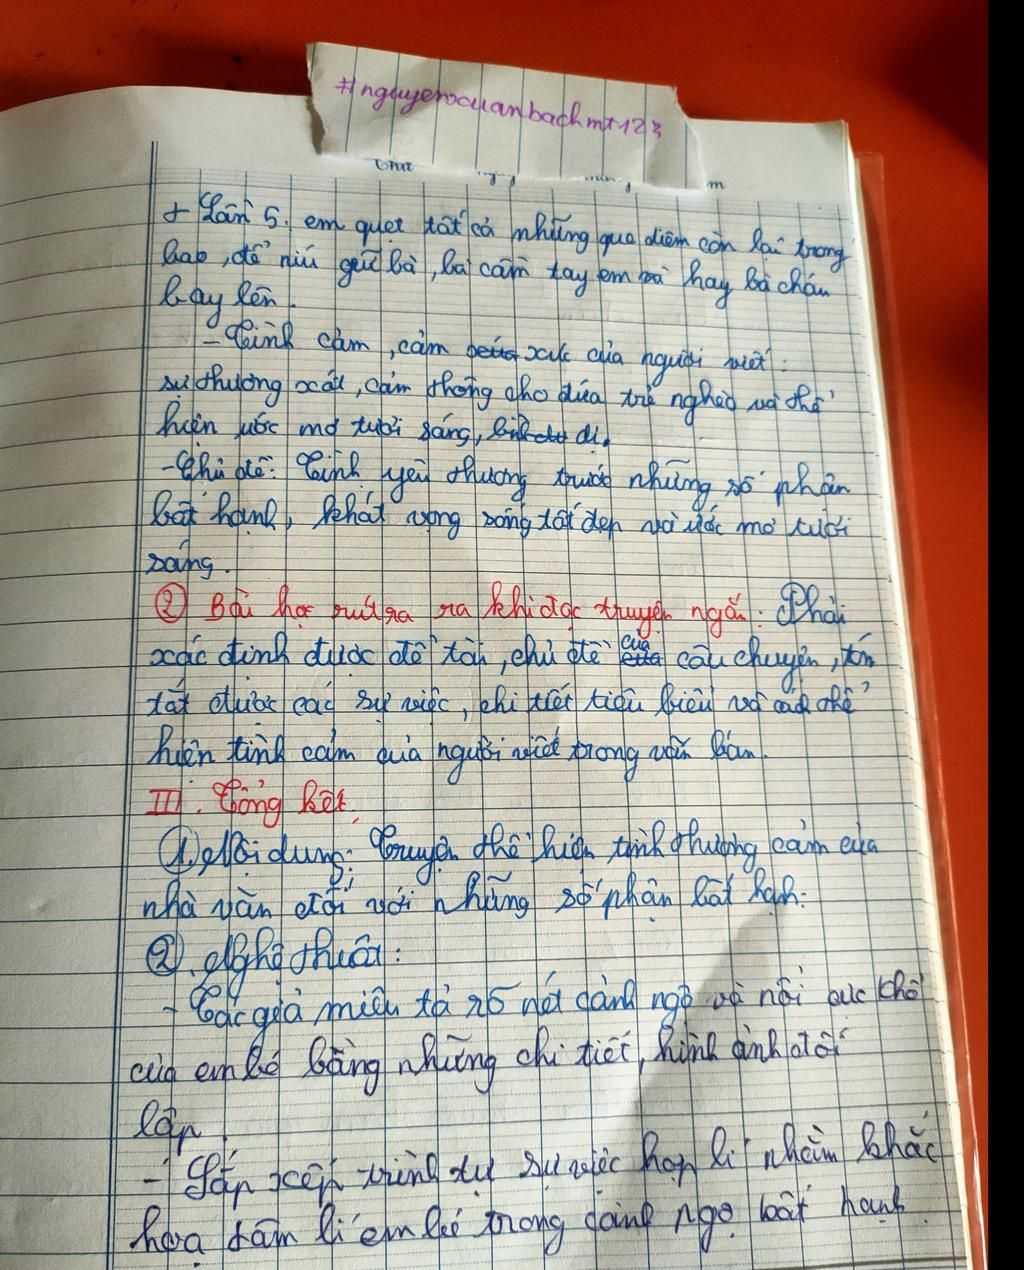 #nguyenxuanbachmt123
+ Lần 5. em quẹt tất cả những que diêm còn lại trong
bao, để níu giữ bà, bà cầm tay em và hay bà cháu
bay lên.
- Tình cảm, cảm xúc của người viết:
sự thương xót, cảm thông cho đứa trẻ nghèo và thể
hiện ước mơ tươi sáng, dị.
- Chủ đề: Tình yêu thương trước những số phận
bất hạnh, khát vọng sống tốt đẹp và ước mơ tươi
sáng.
② Bài học rút ra ra khi đọc truyện ngắn: Phải
xác định được đề tài, chủ đề của câu chuyện, tóm
tắt được các sự việc, chi tiết tiêu biểu và cách thể
hiện tình cảm của người viết trong văn bản.
III. Tổng kết.
①, Nội dung: Truyện thể hiện tình thương cảm của
nhà văn đối với những số phận bất hạnh.
②. Nghệ thuật:
- Tác giả miêu tả rõ nét cảnh ngộ và nỗi cực khổ
của em bé bằng những chi tiết, hình ảnh đối
lập
- Sắp xếp trình tự sự việc hợp lí nhằm khắc
họa tâm lí em bé trong cảnh ngộ bất hạnh.